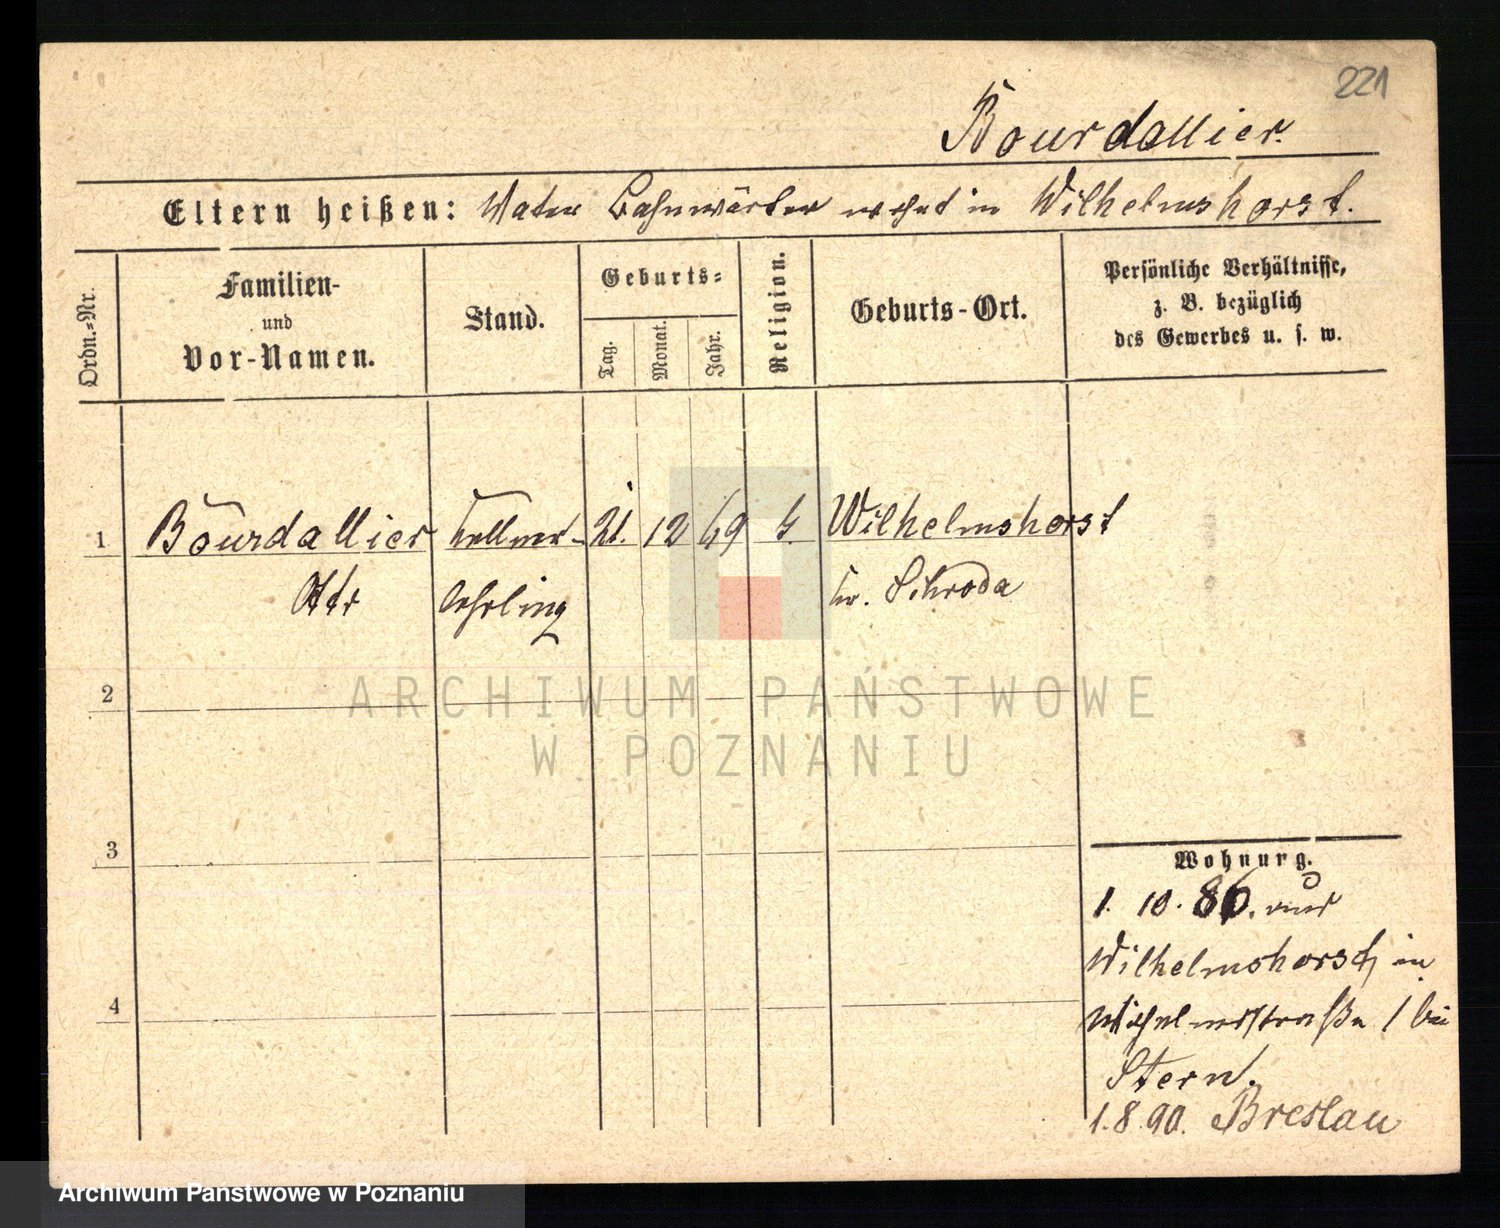 221
Bourdallier.
Eltern heißen: Vater Bahnwärter wohnt in Wilhelmshorst.
Ordn.=Nr.
Familien-
und
Vor-Namen.
Stand.
Geburts=
Tag.
Monat.
Jahr.
Religion.
Geburts-Ort.
Persönliche Verhältnisse,
z. B. bezüglich
des Gewerbes u. s. w.
1 Bourdallier Kellner- 21. 12 69 Wilhelmshorst
Otto lehrling Kr. Schroda
2
3
4
Wohnung.
1. 10. 86. aus
Wilhelmshorst, in
Wilhelmstraße 1 bei
Stern.
1.8.90. Breslau
ARCHIWUM PAŃSTWOWE
W POZNANIU
Archiwum Państwowe w Poznaniu